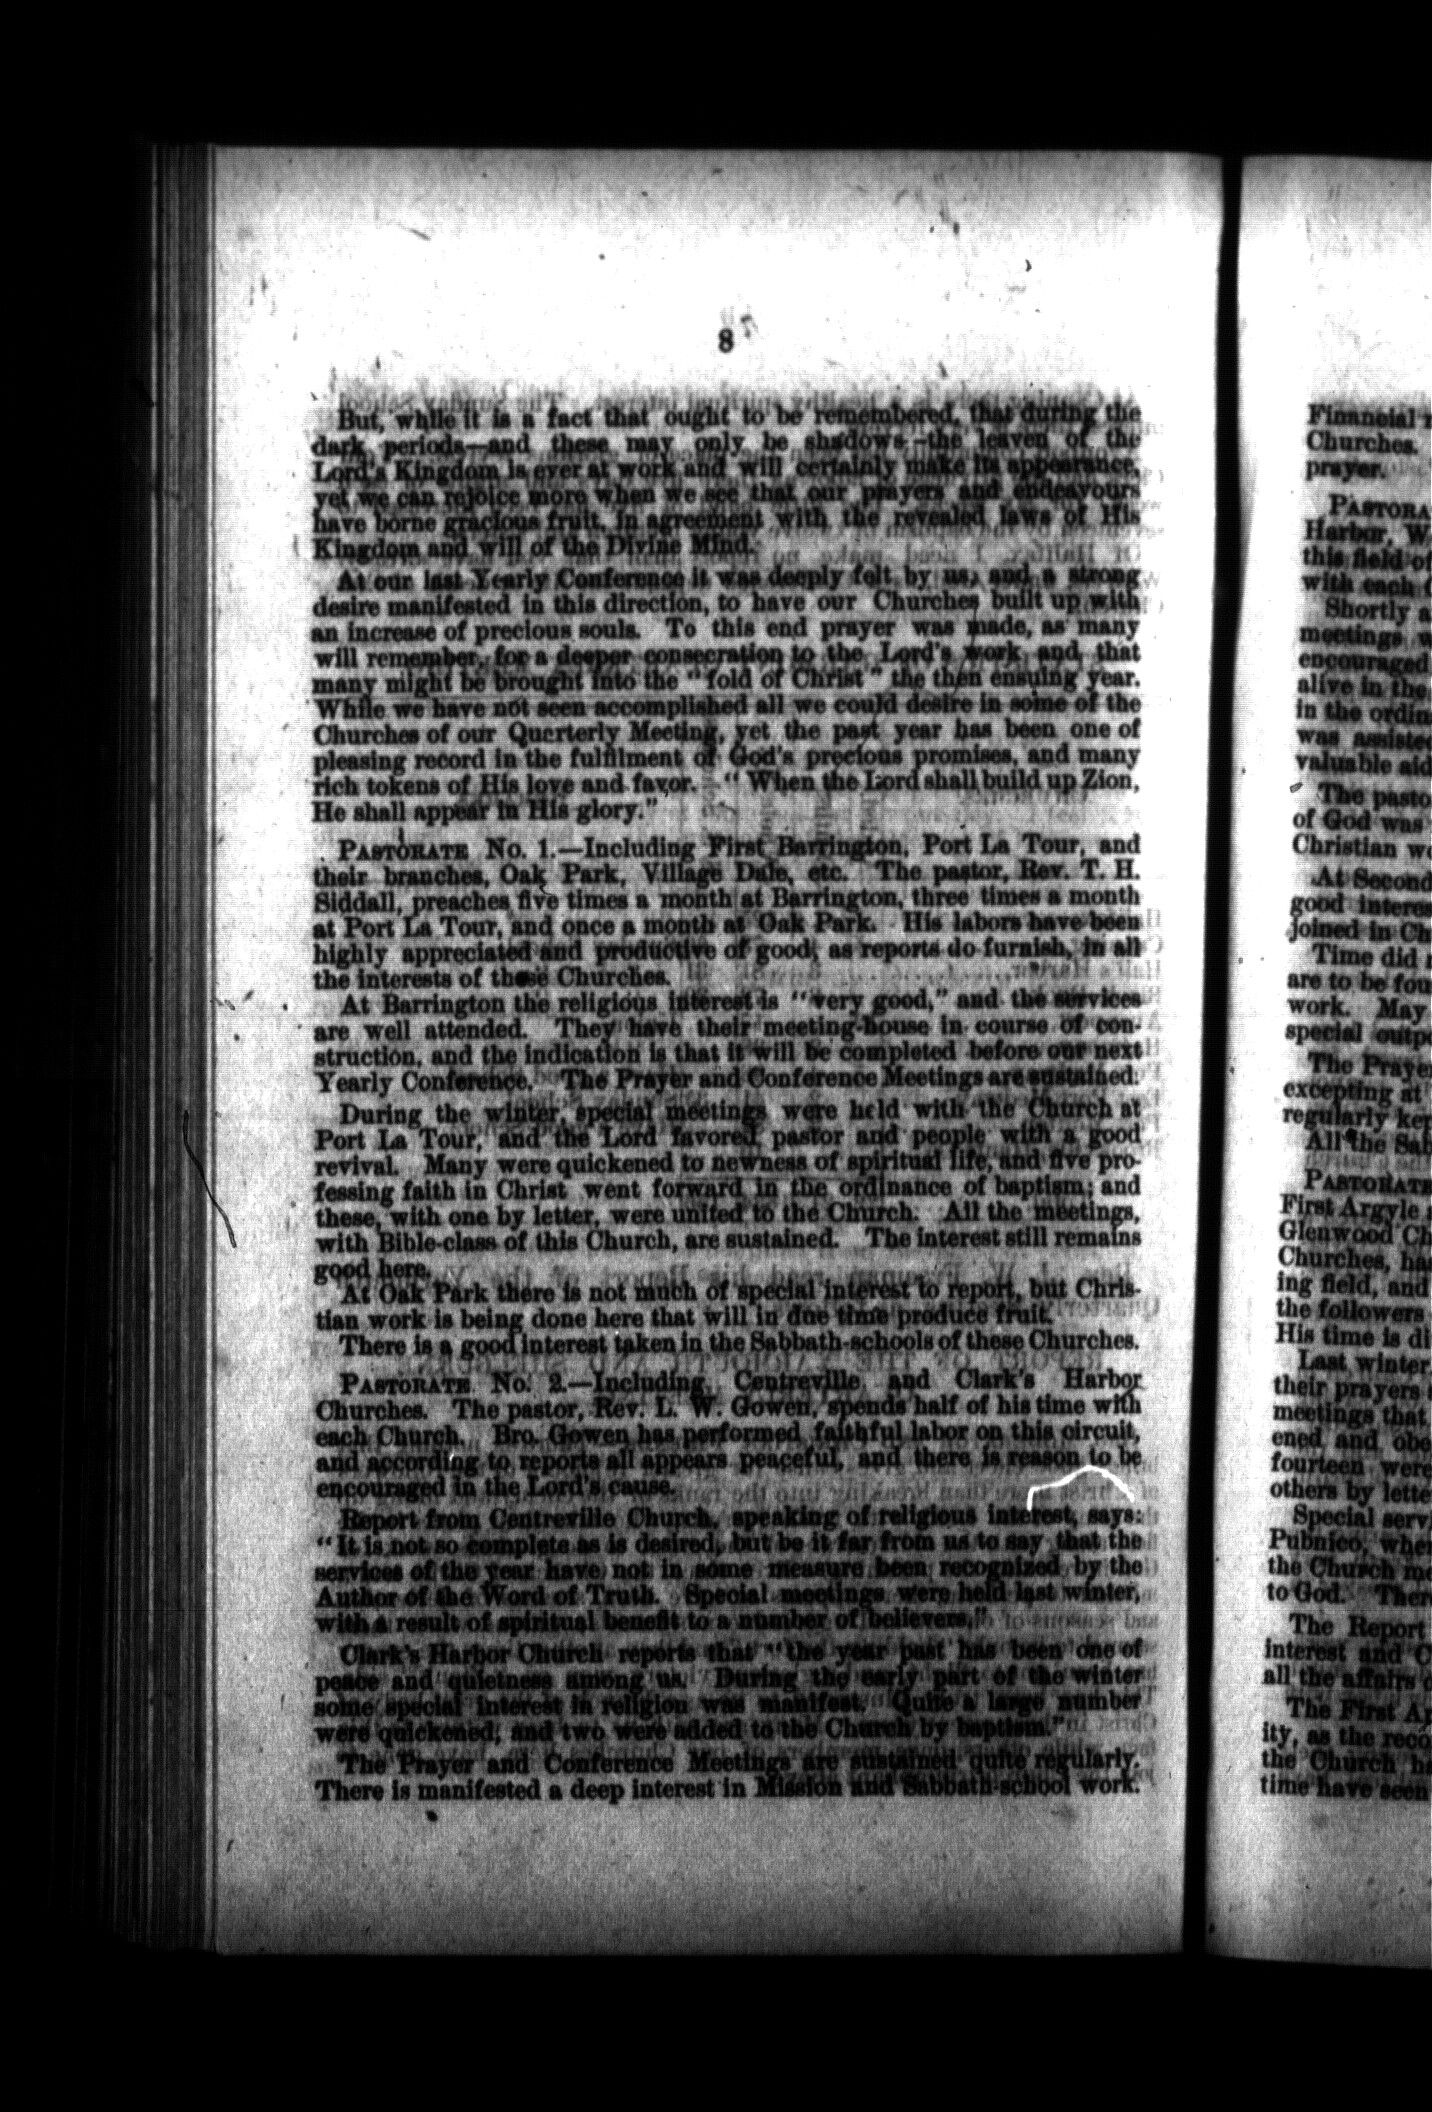 8
But, while it is a fact that ought to be remembered, that during the
dark periods—and these may only be shadows—the leaven of the
Lord's Kingdom is ever at work and will certainly make its appearance,
yet we can rejoice more when we see that our prayers and endeavours
have borne gracious fruit, in agreement with the revealed laws of His
Kingdom and will of the Divine Mind.
At our last Yearly Conference it was deeply felt by us, and a strong
desire manifested in this direction, to have our Churches built up with
an increase of precious souls. To this end prayer was made, as many
will remember, for a deeper consecration to the Lord's work and that
many might be brought into the "fold of Christ" the then ensuing year.
While we have not seen accomplished all we could desire in some of the
Churches of our Quarterly Meeting, yet the past year has been one of
pleasing record in the fulfilment of God's precious promises, and many
rich tokens of His love and favor. "When the Lord shall build up Zion,
He shall appear in His glory."
PASTORATE No. 1.—Including First Barrington, Port La Tour, and
their branches, Oak Park, Village Dale, etc. The pastor, Rev. T. H.
Siddall, preaches five times a month at Barrington, three times a month
at Port La Tour, and once a month at Oak Park. His labors have been
highly appreciated and productive of good, as reports do furnish, in all
the interests of these Churches.
At Barrington the religious interest is "very good," and the services
are well attended. They have their meeting-house in course of con-
struction, and the indication is that it will be completed before our next
Yearly Conference. The Prayer and Conference Meetings are sustained.
During the winter, special meetings were held with the Church at
Port La Tour, and the Lord favored pastor and people with a good
revival. Many were quickened to newness of spiritual life, and five pro-
fessing faith in Christ went forward in the ordinance of baptism; and
these, with one by letter, were united to the Church. All the meetings,
with Bible-class of this Church, are sustained. The interest still remains
good here.
At Oak Park there is not much of special interest to report, but Chris-
tian work is being done here that will in due time produce fruit.
There is a good interest taken in the Sabbath-schools of these Churches.
PASTORATE No. 2.—Including Centreville and Clark's Harbor
Churches. The pastor, Rev. L. W. Gowen, spends half of his time with
each Church. Bro. Gowen has performed faithful labor on this circuit,
and according to reports all appears peaceful, and there is reason to be
encouraged in the Lord's cause.
Report from Centreville Church, speaking of religious interest, says:
"It is not so complete as is desired, but be it far from us to say that the
services of the year have not in some measure been recognized by the
Author of the Word of Truth. Special meetings were held last winter,
with a result of spiritual benefit to a number of believers."
Clark's Harbor Church reports that "the year past has been one of
peace and quietness among us. During the early part of the winter
some special interest in religion was manifest. Quite a large number
were quickened, and two were added to the Church by baptism."
The Prayer and Conference Meetings are sustained quite regularly.
There is manifested a deep interest in Mission and Sabbath-school work.
Financial
Churches.
prayer.
Harbor,
this field of
with each
Shortly
meetings
encouraged
alive in the
in the
was assisted
valuable aid
The
of God was
Christian
At Second
good
joined in
Time did
are to be
work. May
special
The Prayer
excepting at
regularly
All the
PASTORATE
First Argyle
Glenwood
Churches,
ing field, and
the followers
His time is
Last winter,
their prayers
meetings that
ened and
fourteen were
others by
Special
Pubnico,
the Church
to God.
The Report
interest and
all the affairs
The First
ity, as the
the Church
time have seen